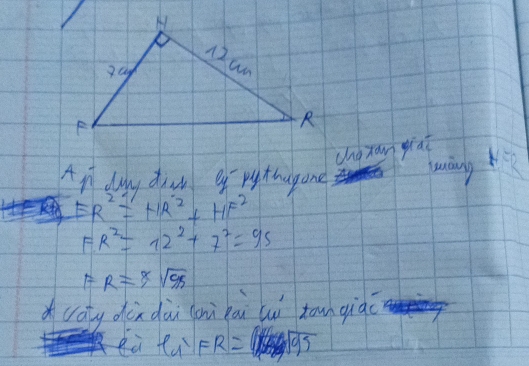 H
7cm 12cm
F R
Áp dụng định lý pythagore cho tam giác vuông HFR
FR² = HR² + HF²
FR² = 12² + 7² = 95
FR = √95
vậy độ dài còn lại của tam giác
là FR = √95